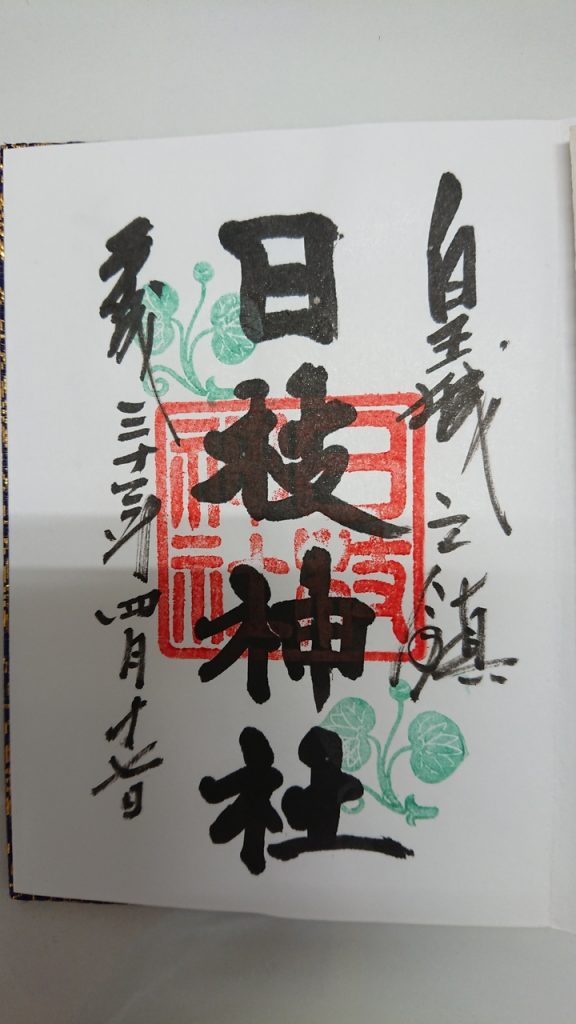 皇城之鎮
日枝神社
日枝
神社
平成三十一年四月十七日